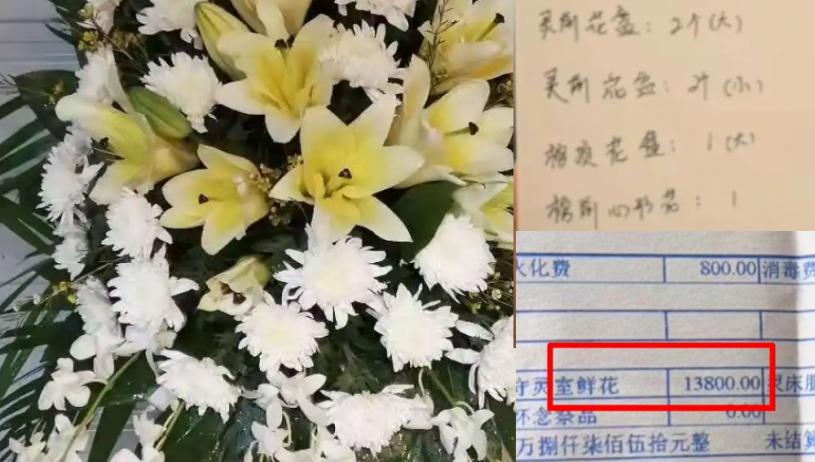 灵前花：2个(大)
灵前花：2个(小)
花：1(大)
心形花：1
火化费 800.00 消毒费
守灵室鲜花 13800.00 灵床
怀念祭品 0.00
万捌仟柒佰伍拾元整 未结算